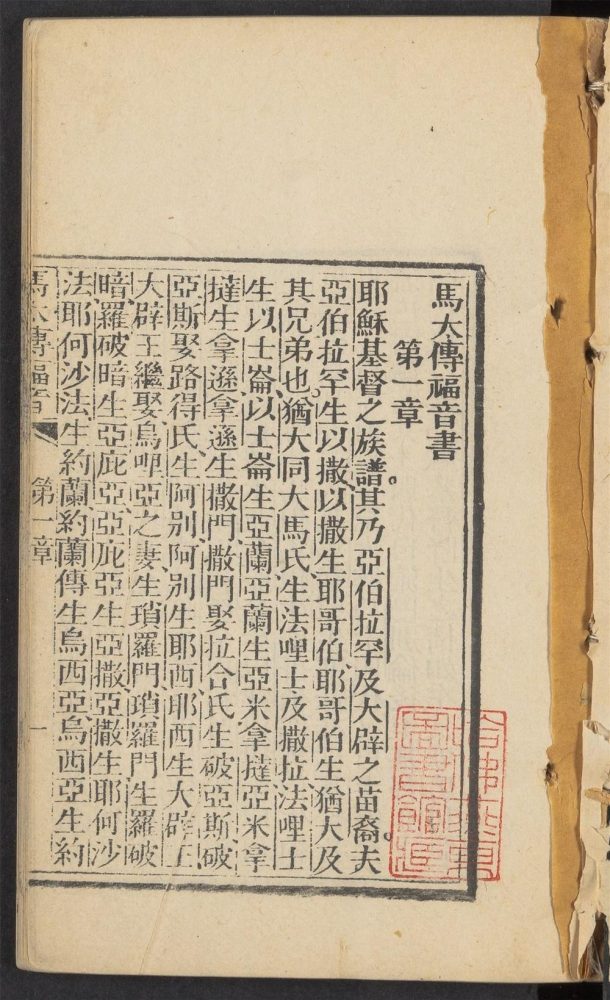 馬太傳福音書
第一章
耶穌基督之族譜。其乃亞伯拉罕及大辟之苗裔。夫
亞伯拉罕生以撒、以撒生耶哥伯、耶哥伯生猶大及
其兄弟也。猶大同大馬氏生法哩士及撒拉、法哩士
生以士崙、以士崙生亞蘭、亞蘭生亞米拿撻、亞米拿
撻生拿遜、拿遜生撒門、撒門娶拉合氏生破亞斯、破
亞斯娶路得氏生阿別、阿別生耶西、耶西生大辟王、
大辟王繼娶烏哩亞之妻生瑣羅門、瑣羅門生羅破
暗、羅破暗生亞庇亞、亞庇亞生亞撒、亞撒生耶何沙
法、耶何沙法生約蘭、約蘭傳生烏西亞、烏西亞生約
馬太傳福音 第一章 一
哈佛燕京圖書館